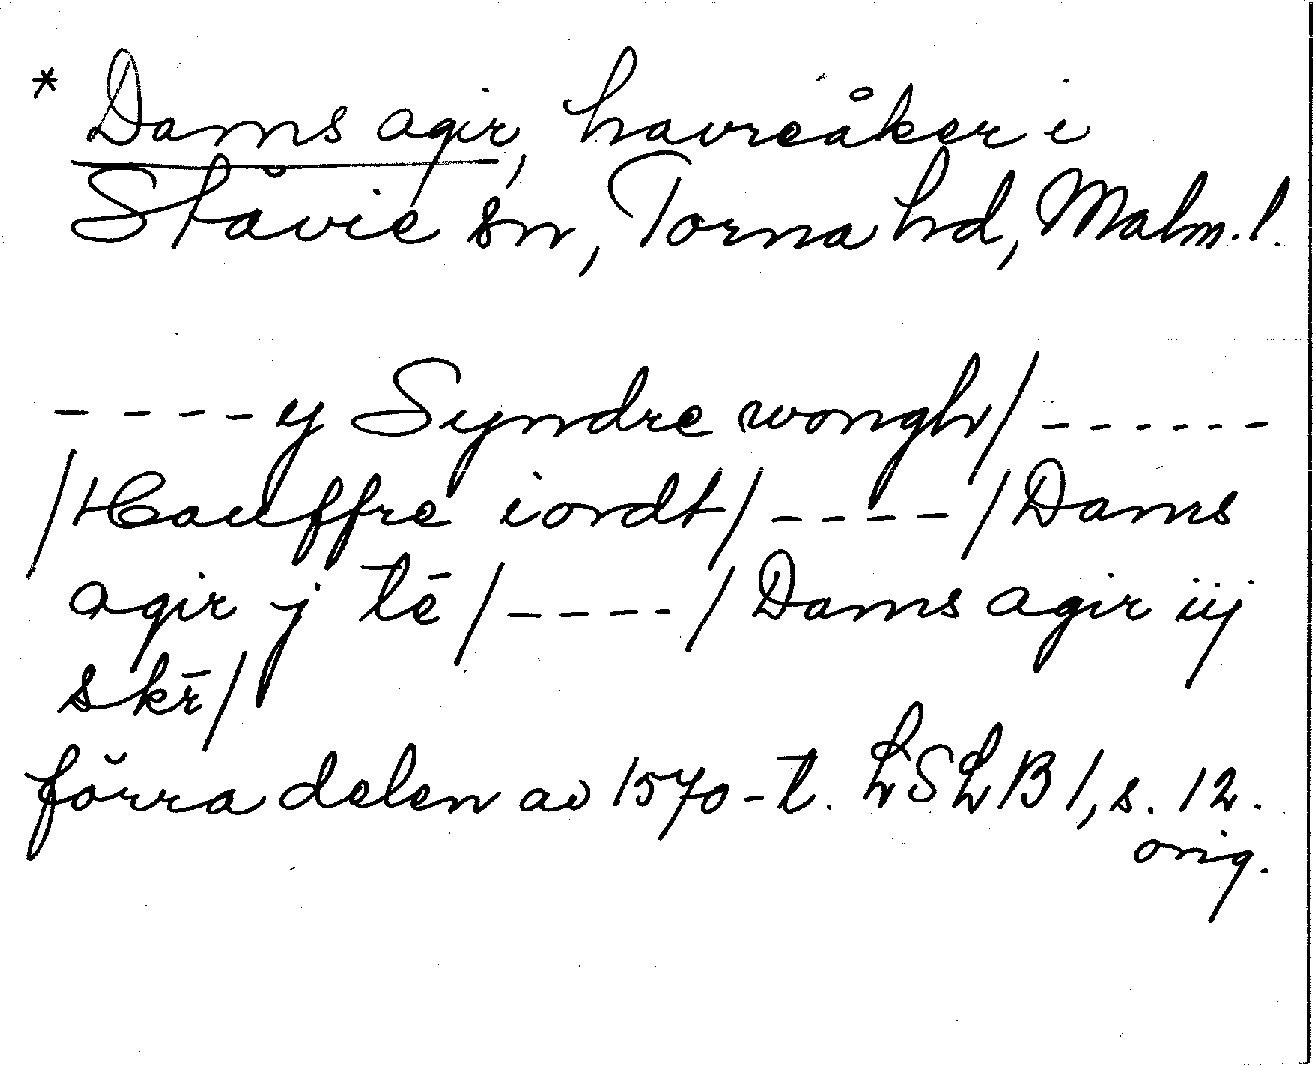 * Dams agir, havreåker i
Stävie sn, Torna hd, Malm. l.
----y Syndre wongh/------
/Hauffre iordt/----/Dams
agir j tē/----/Dams agir iij
skr̄/
förra delen av 1570-t. LSLB 1, s. 12.
orig.